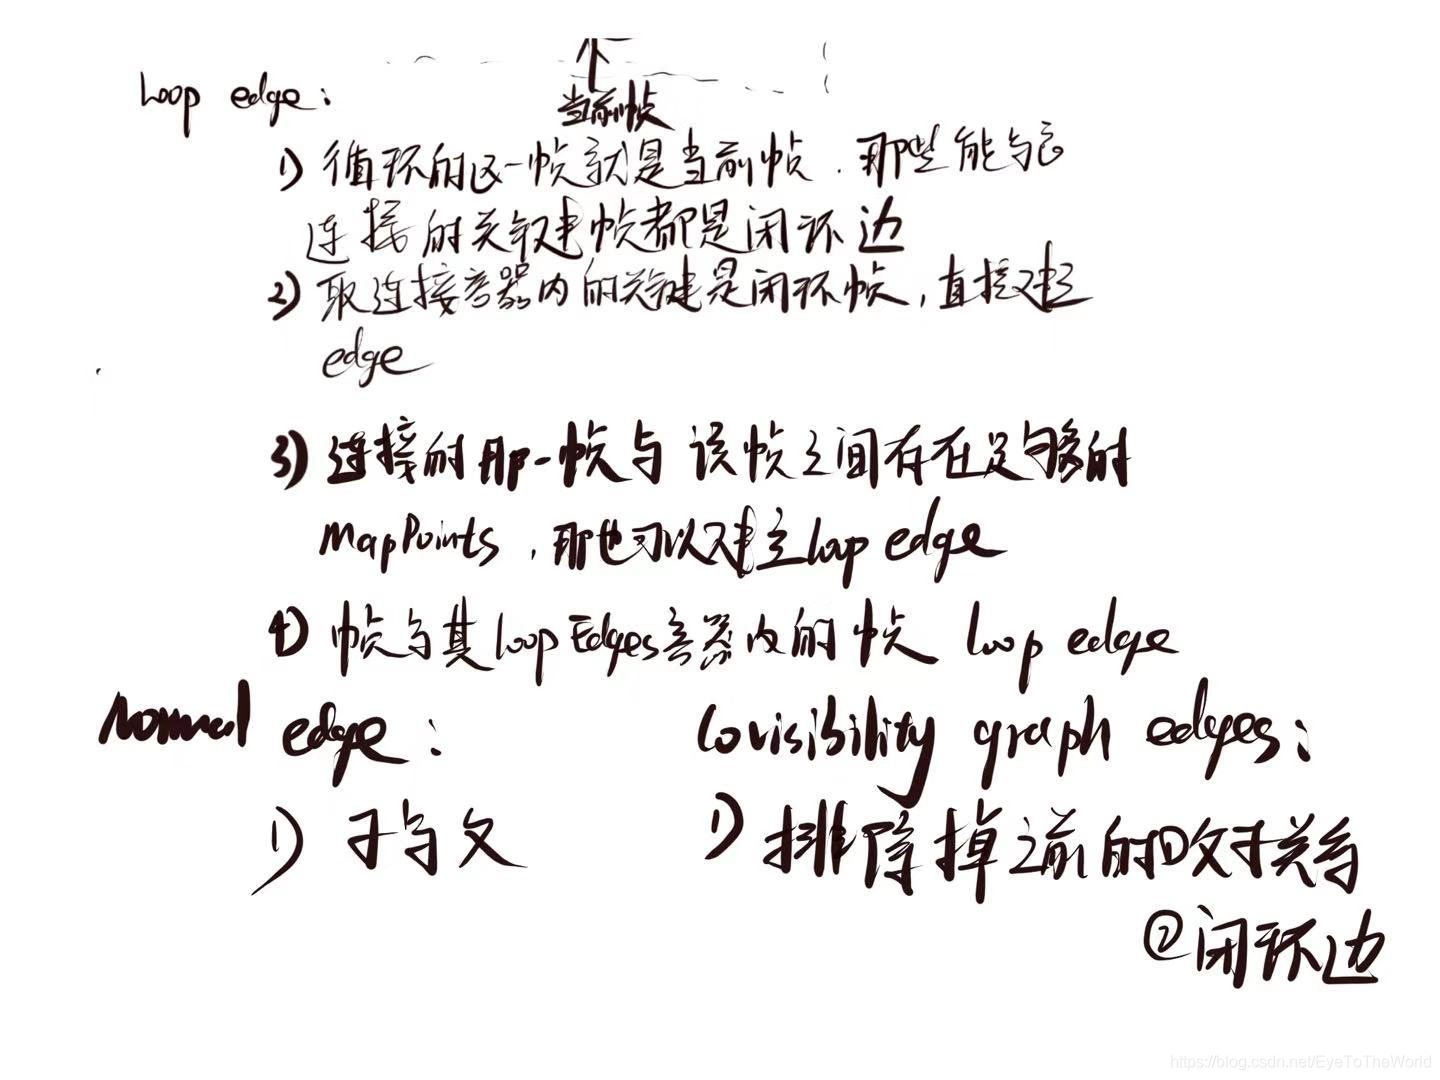 当前帧
Loop edge:
1) 循环的这一帧就是当前帧,那些能与它
连接的关键帧都是闭环边
2) 取连接容器内的关键是闭环帧,直接建立
edge
3) 连接的那一帧与该帧之间存在足够的
MapPoints,那也可以建立loop edge
4) 帧与其loopEdges容器内的帧 loop edge
Normal edge: Covisibility graph edges:
1) 子与父 1) 排除掉之前的①父子关系
②闭环边
https://blog.csdn.net/EyeToTheWorld